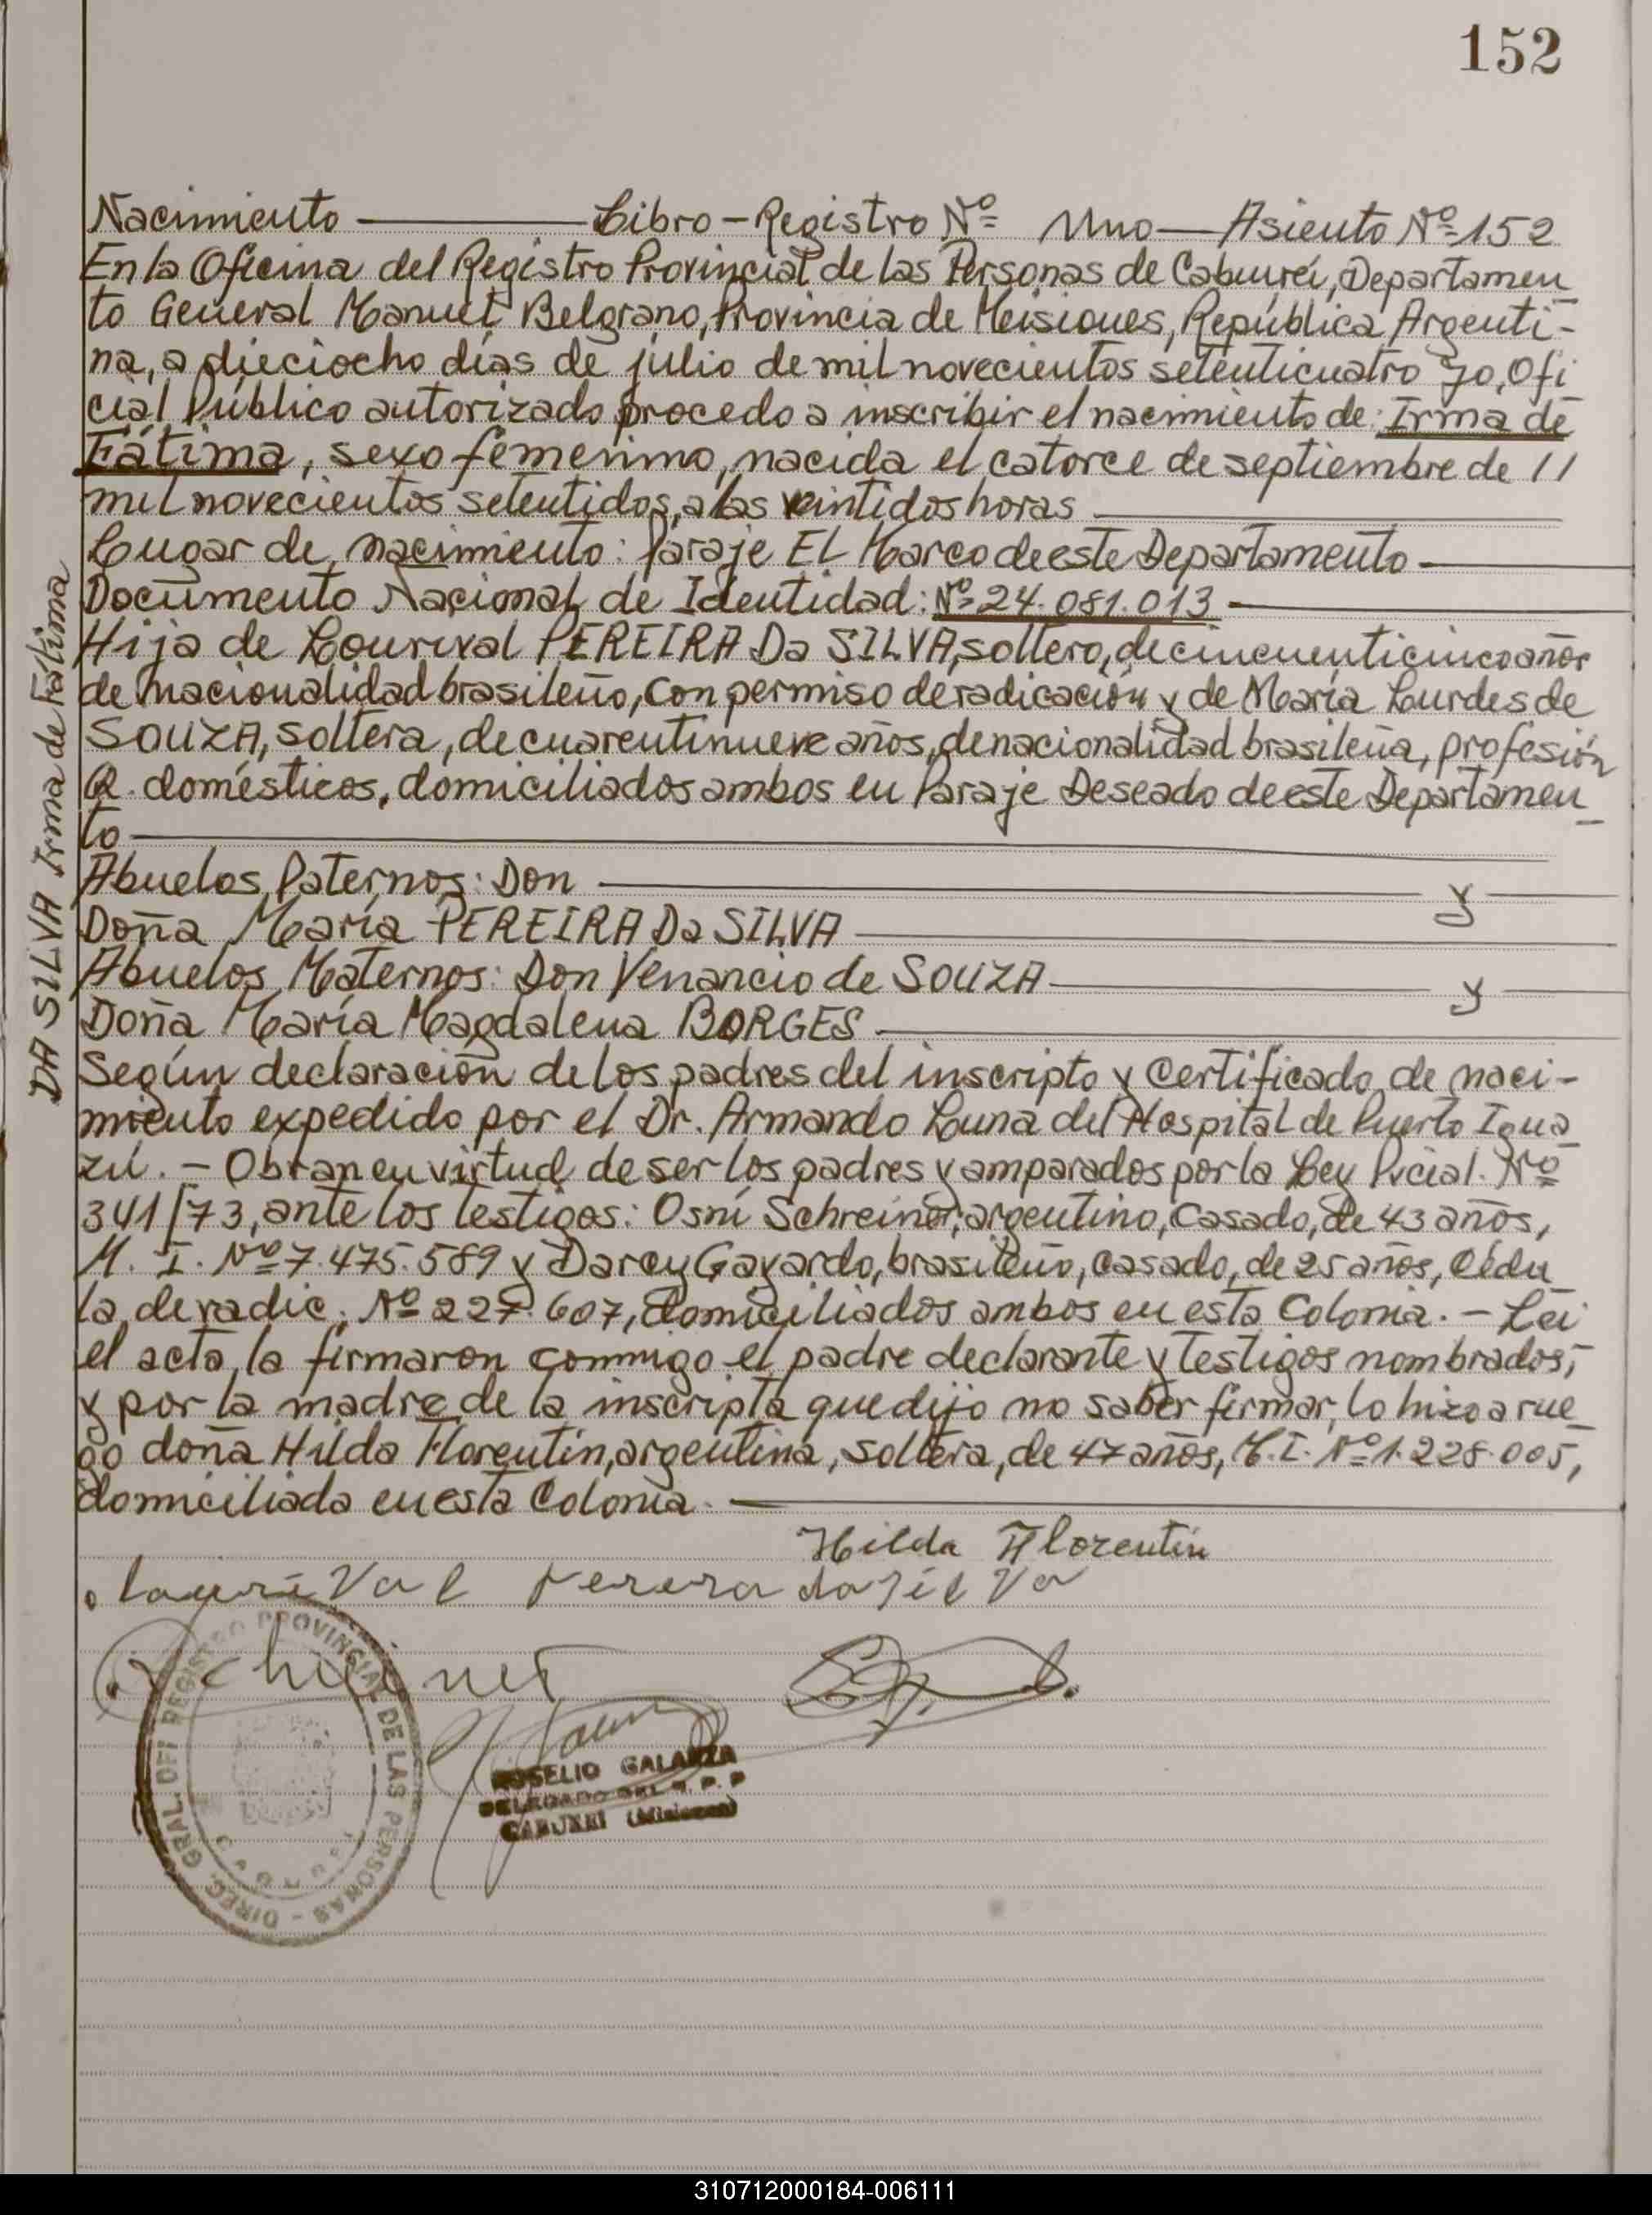 152
Nacimiento Libro-Registro Nº Uno Asiento Nº 152
En la Oficina del Registro Provincial de las Personas de Cabureí, Departamen
to General Manuel Belgrano, Provincia de Misiones, República Argenti-
na, a dieciocho días de julio de mil novecientos setenticuatro Yo, Ofi
cial Público autorizado procedo a inscribir el nacimiento de: Irma de
Fátima, sexo femenino, nacida el catorce de septiembre de //
mil novecientos setentidos, a las veintidos horas
Lugar de nacimiento: Paraje El Marco de este Departamento
Documento Nacional de Identidad: Nº 24.081.013
Hija de Lourival PEREIRA Da SILVA, soltero, de cincuenticinco años
de nacionalidad brasileño, con permiso de radicación y de María Lurdes de
SOUZA, soltera, de cuarentinueve años, de nacionalidad brasileña, profesión
Q. domésticos, domiciliados ambos en Paraje Deseado de este Departamen
to
Abuelos Paternos: Don y
Doña María PEREIRA Da SILVA
Abuelos Maternos: Don Venancio de SOUZA y
Doña María Magdalena BORGES
Según declaración de los padres del inscripto y Certificado de naci-
miento expedido por el Dr. Armando Luna del Hospital de Puerto Igua
zú. - Obran en virtud de ser los padres y amparados por la Ley Pcial. Nº
341/73, ante los testigos: Osní Schreiner, argentino, casado, de 43 años,
M. I. Nº 7.475.589 y Darcy Gayardo, brasileño, casado, de 25 años, Cédu
la de radic. Nº 227.607, domiciliados ambos en esta Colonia. - Leí
el acta, la firmaron conmigo el padre declarante y testigos nombrados,
y por la madre de la inscripta que dijo no saber firmar, lo hizo a rue
go doña Hilda Florentín, argentina, soltera, de 47 años, M.I. Nº 1.228.005,
domiciliada en esta Colonia.
DA SILVA Irma de Fatima
Hilda Florentín
Lourival Perera da Silva
Schreiner
DIREC. GRAL. DEL REGISTRO PROVINCIAL DE LAS PERSONAS
ROSELIO GALARZA
DELEGADO DEL R. P. P
CABUREI (Misiones)
310712000184-006111